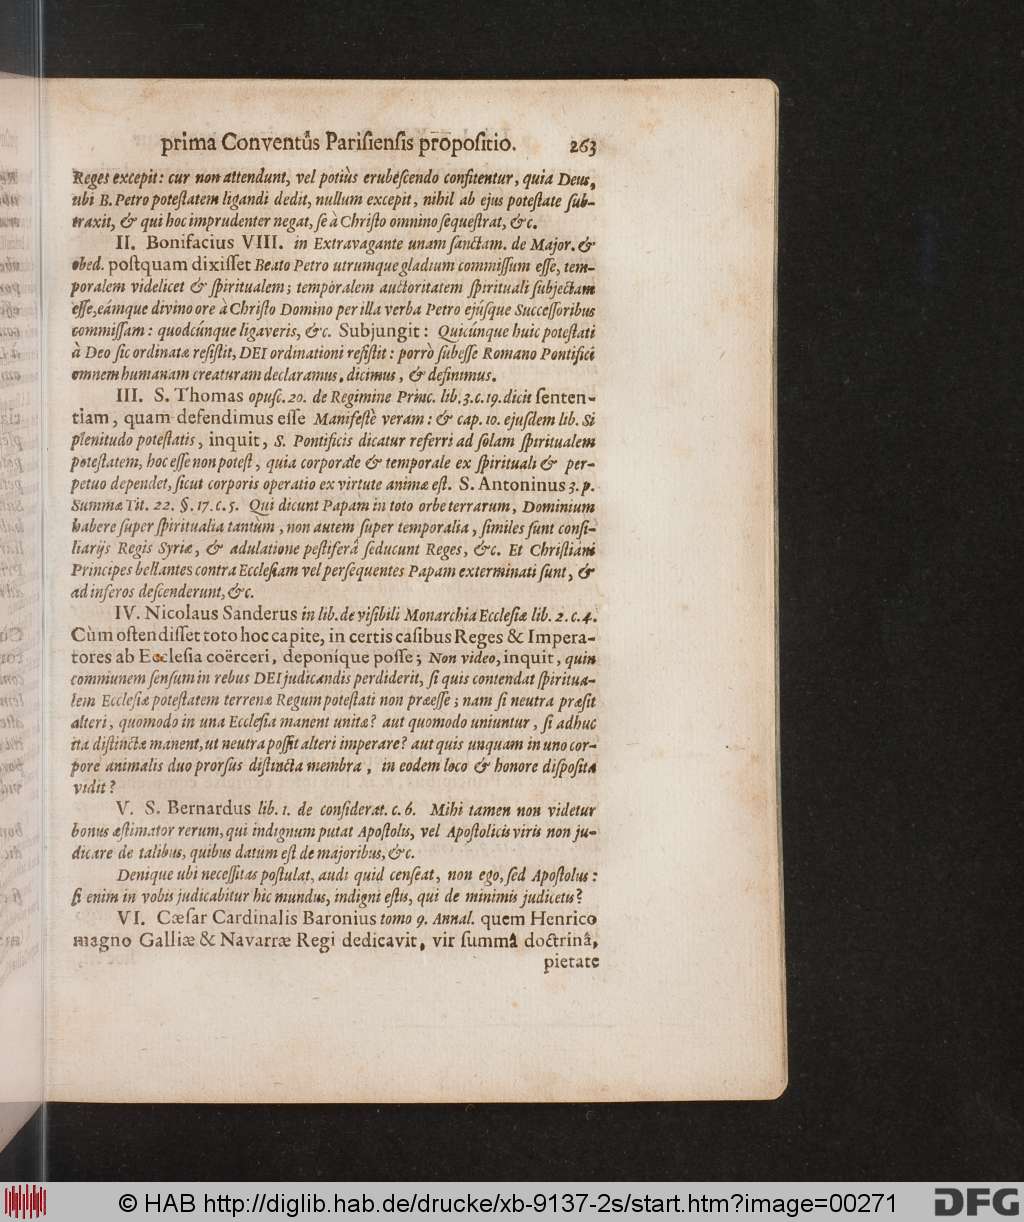 prima Conventûs Parisiensis propositio. 263
Reges excepit: cur non attendunt, vel potiùs erubescendo confitentur, quia Deus,
ubi B. Petro potestatem ligandi dedit, nullum excepit, nihil ab ejus potestate sub-
traxit, & qui hoc imprudenter negat, se à Christo omnino sequestrat, &c.
II. Bonifacius VIII. in Extravagante unam sanctam. de Major. &
obed. postquam dixisset Beato Petro utrumque gladium commissum esse, tem-
poralem videlicet & spiritualem; temporalem auctoritatem spirituali subjectam
esse, eámque divino ore à Christo Domino per illa verba Petro ejúsque Successoribus
commissam: quodcúnque ligaveris, &c. Subjungit: Quicúnque huic potestati
à Deo sic ordinatæ resistit, DEI ordinationi resistit: porrò subesse Romano Pontifici
omnem humanam creaturam declaramus, dicimus, & definimus.
III. S. Thomas opusc. 20. de Regimine Princ. lib. 3. c. 19. dicit senten-
tiam, quam defendimus esse Manifestè veram: & cap. 10. ejusdem lib. Si
plenitudo potestatis, inquit, S. Pontificis dicatur referri ad solam spiritualem
potestatem, hoc esse non potest, quia corporale & temporale ex spirituali & per-
petuo dependet, sicut corporis operatio ex virtute animæ est. S. Antoninus 3. p.
Summæ Tit. 22. §. 17. c. 5. Qui dicunt Papam in toto orbe terrarum, Dominium
habere super spiritualia tantùm, non autem super temporalia, similes sunt consi-
liarijs Regis Syriæ, & adulatione pestiferâ seducunt Reges, &c. Et Christiani
Principes bellantes contra Ecclesiam vel persequentes Papam exterminati sunt, &
ad inferos descenderunt, &c.
IV. Nicolaus Sanderus in lib. de visibili Monarchia Ecclesiæ lib. 2. c. 4.
Cùm ostendisset toto hoc capite, in certis casibus Reges & Impera-
tores ab Ecclesia coërceri, deponíque posse; Non video, inquit, quin
communem sensum in rebus DEI judicandis perdiderit, si quis contendat spiritua-
lem Ecclesiæ potestatem terrenæ Regum potestati non præesse; nam si neutra præsit
alteri, quomodo in una Ecclesia manent unitæ? aut quomodo uniuntur, si adhuc
ita distinctæ manent, ut neutra possit alteri imperare? aut quis unquam in uno cor-
pore animalis duo prorsus distincta membra, in eodem loco & honore disposita
vidit?
V. S. Bernardus lib. 1. de considerat. c. 6. Mihi tamen non videtur
bonus æstimator rerum, qui indignum putat Apostolis, vel Apostolicis viris non ju-
dicare de talibus, quibus datum est de majoribus, &c.
Denique ubi necessitas postulat, audi quid censeat, non ego, sed Apostolus:
si enim in vobis judicabitur hic mundus, indigni estis, qui de minimis judicetis?
VI. Cæsar Cardinalis Baronius tomo 9. Annal. quem Henrico
magno Galliæ & Navarræ Regi dedicavit, vir summâ doctrinâ,
pietate
© HAB http://diglib.hab.de/drucke/xb-9137-2s/start.htm?image=00271
DFG